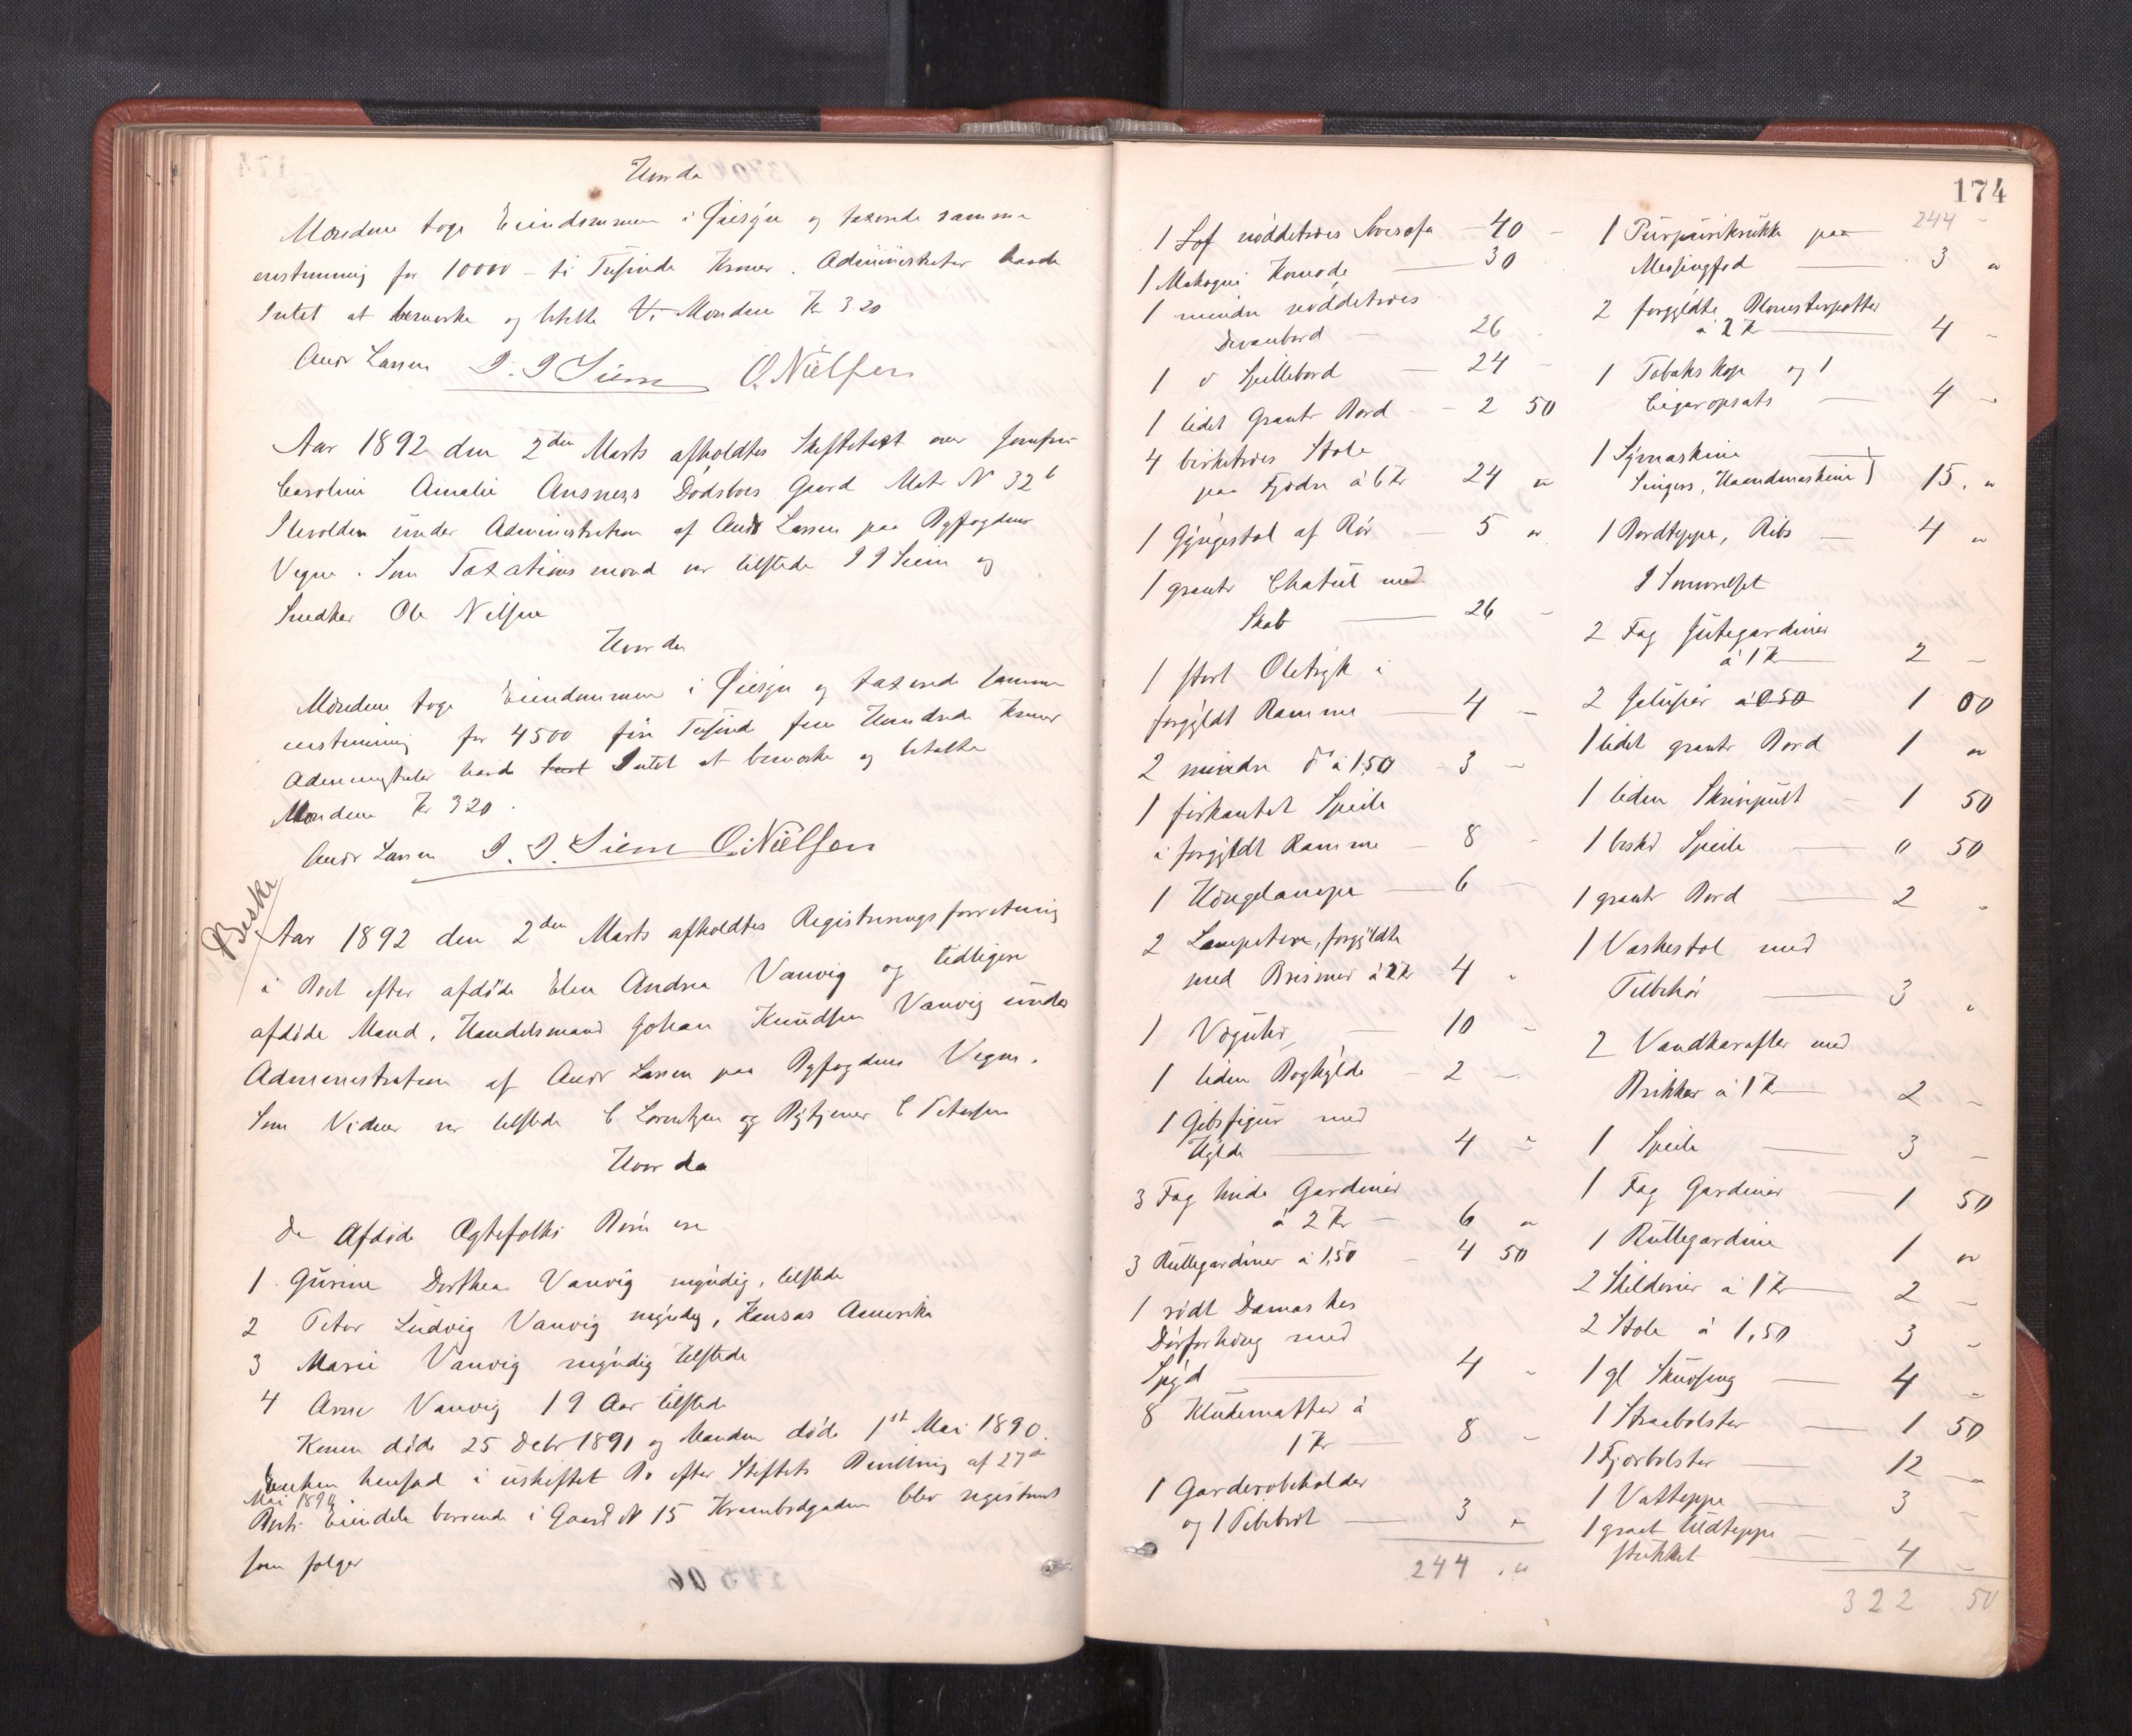 Hvorda
Mændene toge Eiendommen i Øiesyn og taxerede samme
enstemmig for 10000 - ti Tusinde Kroner. Administrator havde
Intet at bemærke og betalte Mændene Kr 3 20
Andr Larsen I. I Siem O. Nielsen
Aar 1892 den 2den Marts afholdtes Skiftetaxt over Jomfru
Caroline Amalie Dødsboes Gaard Matr N 32 b
under Administration af Andr Larsen paa Byfogdens
Vegne. Som Taxationsmænd var tilstede I I Siem og
Snedker Ole Nilsen
Hvorda
Mændene toge Eiendommen i Øiesyn og taxerede samme
enstemmig for 4500 fire Tusind fem Hundrede Kroner
Administrator havde Intet at bemærke og betalte
Mændene Kr 3 20.
Andr Larsen I. I. Siem O. Nielsen
Beskr
Aar 1892 den 2den Marts afholdtes Registreringsforretning
i Boet efter afdøde Elen Andrea Vanvig og tidligere
afdøde Mand, Handelsmand Johan Knudsen Vanvig under
Administration af Andr Larsen paa Byfogdens Vegne.
Som Vidner var tilstede C Lorentzen og Bytjener C Petersen
Hvorda
De Afdøde Ægtefolks Børn ere
1 Gurine Dorthea Vanvig myndig, tilstede
2 Peter Ludvig Vanvig myndig, Kansas Amerika
3 Marie Vanvig myndig tilstede
4 Arne Vanvig 19 Aar tilstede
Konen døde 25 Debr 1891 og Manden døde 1st Mai 1890.
Enken hensad i uskiftet Bo efter Stiftets Bevilling af 27de
Mai 1890.
Boets Eiendele beroende i Gaard N 15 Krambodgaden blev registreret
som følger
174
1 Sof nøddetræes 40 -
1 Mahogni Komode 30
1 mindre nøddetræes
Divanbord 26
1 do Spillebord 24 -
1 lidet grant Bord 2 50
4 birketræes Stole
paa Fjædre à 6 Kr 24 "
1 Gyngestol af Rør 5 "
1 grantr Chatul med
Skab 26 -
1 stort Oletryk i
forgyldt Ramme 4 -
2 mindre do à 1,50 3 -
1 firkantet Speile
i forgyldt Ramme 8 -
1 Hængelampe 6 -
2 Lampetter, forgyldte
med Prismer à 2 Kr 4 "
1 Vægtuhr 10 -
1 liden Boghylde 2 -
1 Gibsfigur med
Hylde 4 "
3 Fag hvide Gardiner
à 2 Kr 6 "
3 Rullegardiner à 1,50 4 50
1 rødt Damaskes
Dørforhæng med
Spyd 4 -
8 Kludematter à
1 Kr 8 -
1 Garderobeholder
og 1 Pibebræt 3 "
244 . "
244 -
1 Purpurikrukke paa
Messingfod 3 "
2 forgyldte Blomsterpotter
à 2 Kr 4 -
1 Tobakskop og 1
Cigaropsats 4 -
1 Symaskine
Singers, Haandmaskine) 15. "
1 Bordteppe, Ribs 4 "
I Soveværelset
2 Fag Jutegardiner
à 1 Kr 2 -
2 Jalusier à 0 50 1 00
1 lidet grantr Bord 1 "
1 liden Skrivepult 1 50
1 beskd Speile " 50
1 grantr Bord 2 -
1 Vaskestol med
Tilbehør 3 "
2 Vandkarafler med
Brikker à 1 Kr 2 -
1 Speile 3 -
1 Fag Gardiner 1 50
1 Rullegardine 1 "
2 Skilderier à 1 Kr 2 -
2 Stole à 1,50 3 -
1 gl Skuvseng 4 -
1 Straabolster 1 50
1 Fjærbolster 12 -
1 Vatteppe 3 -
1 graat Uldteppe
strikket 4 -
322 50